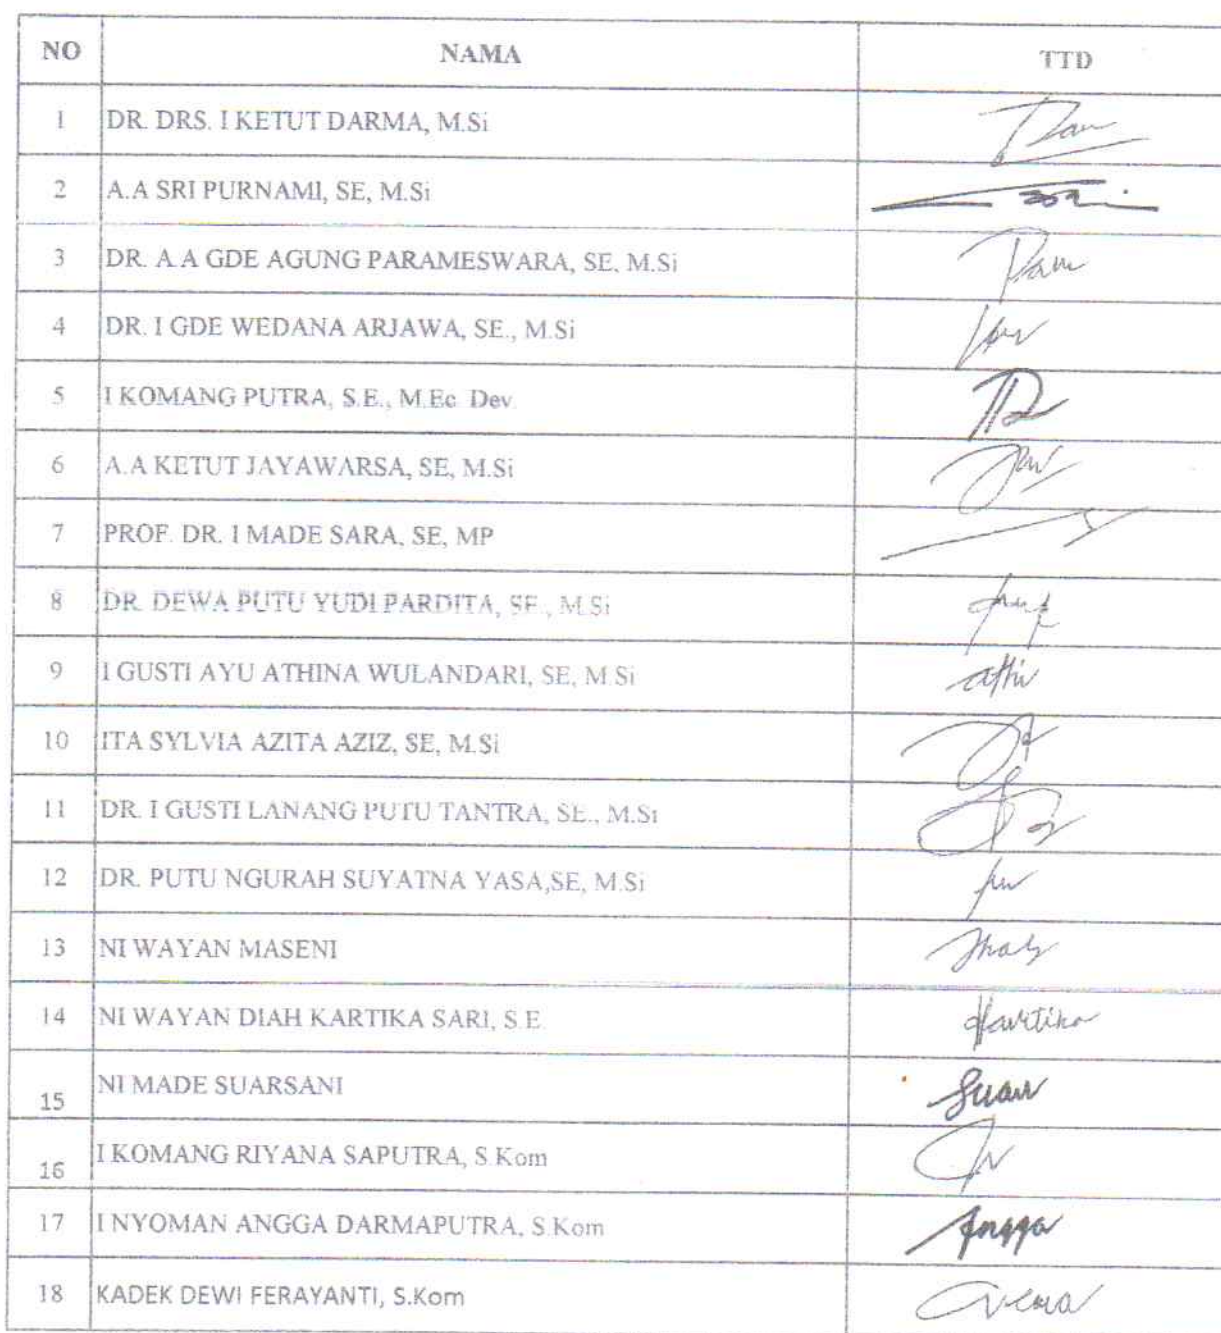 NO NAMA TTD
1 DR. DRS. I KETUT DARMA, M.Si
2 A.A SRI PURNAMI, SE, M.Si
3 DR. A.A GDE AGUNG PARAMESWARA, SE, M.Si
4 DR. I GDE WEDANA ARJAWA, SE., M.Si
5 I KOMANG PUTRA, S.E., M.Ec. Dev.
6 A.A KETUT JAYAWARSA, SE, M.Si
7 PROF. DR. I MADE SARA, SE, MP
8 DR. DEWA PUTU YUDI PARDITA, SE., M.Si
9 I GUSTI AYU ATHINA WULANDARI, SE, M.Si athi
10 ITA SYLVIA AZITA AZIZ, SE, M.Si
11 DR. I GUSTI LANANG PUTU TANTRA, SE., M.Si
12 DR. PUTU NGURAH SUYATNA YASA,SE, M.Si
13 NI WAYAN MASENI
14 NI WAYAN DIAH KARTIKA SARI, S.E. Kartika
15 NI MADE SUARSANI Suar
16 I KOMANG RIYANA SAPUTRA, S.Kom
17 I NYOMAN ANGGA DARMAPUTRA, S.Kom Angga
18 KADEK DEWI FERAYANTI, S.Kom